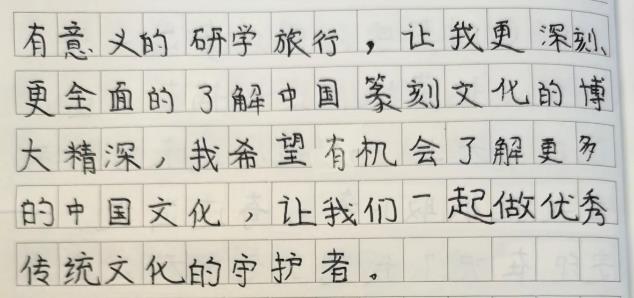 有意义的研学旅行，让我更深刻、
更全面的了解中国篆刻文化的博
大精深，我希望有机会了解更多
的中国文化，让我们一起做优秀
传统文化的守护者。